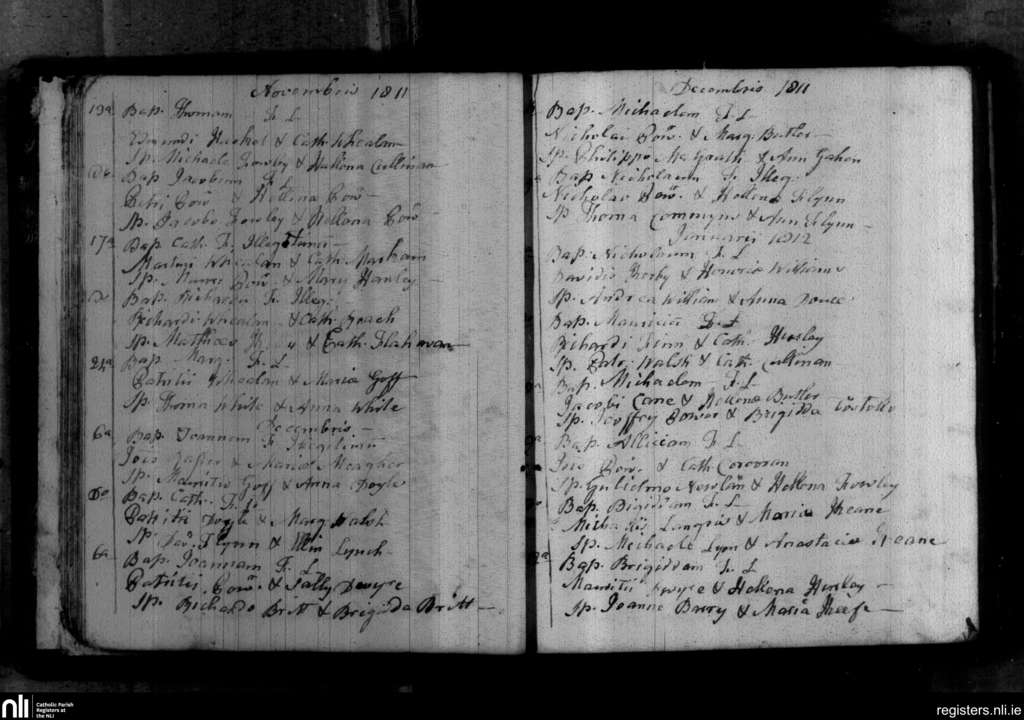 Novembris 1811
13a Bap. Thomam F. L.
& Cath. Whealan
Sp. Michaele Rowley & Hellena Cullinan
Do Bap. Jacobum F. L.
Petri Pow̃ & Hellena Pow̃
Sp. Jacobo Rowley & Hellena Pow̃
17a Bap. Cath. F. Illegitimi
Whealan & Cath. Marham
Sp. Pow̃ & Mary Hanley
Do Bap. Richardu F. Illegi
Richardi Whealan & Cath. Roach
Sp. Mathaeo & Cath. Flahavan
24a Bap. Marg. F. L.
Patritii Whealan & Maria Goff
Sp. Thoma White & Anna White
Decembris
6a Bap. Joannem F. Illegitimi
Jois & Maria Meagher
Sp. Mauritio Goff & Anna Doyle
Do Bap. Cath. F. L.
Patritii Doyle & Marg. Walsh
Sp. Flynn & Lynch
6a Bap. Joannam F. L.
Patritii Pow̃. & Sally Dwyre
Sp. Richardo Britt & Brigida Britt
Decembris 1811
Bap. Michaelem F. L.
Nicholai Pow̃. & Marg. Butler
Sp. Philippo McGrath & Ann Gahan
Bap. Nicholaum F. Illeg.
Nicholai Pow̃. & Hellena Flynn
Sp. Thoma Commyns & Ann Flynn
Januarii 1812
Bap. Nicholaum F. L.
Davidis & Honoria Williams
Sp. Andrea William & Anna Power
Bap. Mauritiu F. L.
Richardi & Cath. Hurley
Sp. Patr. Walsh & Cath. Cullinan
Bap. Michaelem F. L.
Jacobi Cane & Hellena Butler
Sp. Joffry Power & Brigidda Costello
Bap. Alliciam F. L.
Jois Pow̃. & Cath. Corcoran
Sp. Gulielmo Nowlan & Hellena Rowley
Bap. Brigiddam F. L.
Michaelis Langan & Maria Keane
Sp. Michaele Lyon & Anastacia Keane
Bap. Brigiddam F. L.
Mauritii Dwyre & Hellena Hurley
Sp. Joanne Barry & Maria Keefe
nli
Catholic Parish
Registers at
the NLI
registers.nli.ie